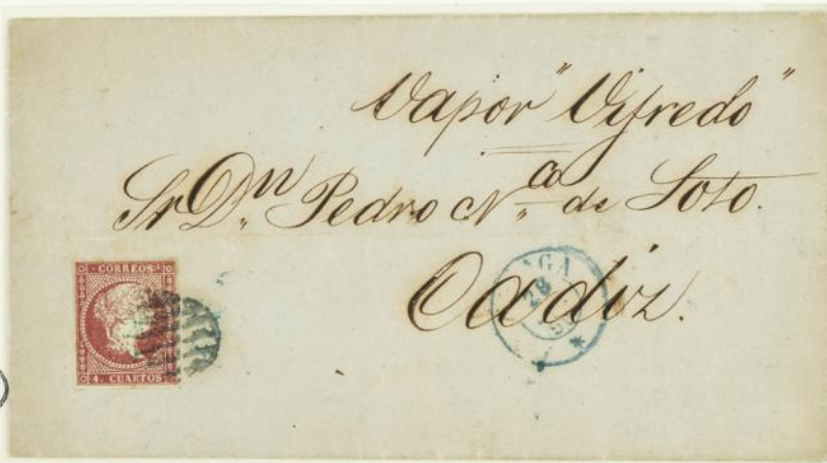 Vapor "Vifredo"
Sr Dn Pedro N.ª de Soto.
Cadiz.
CORREOS
4. CUARTOS
AGA
28